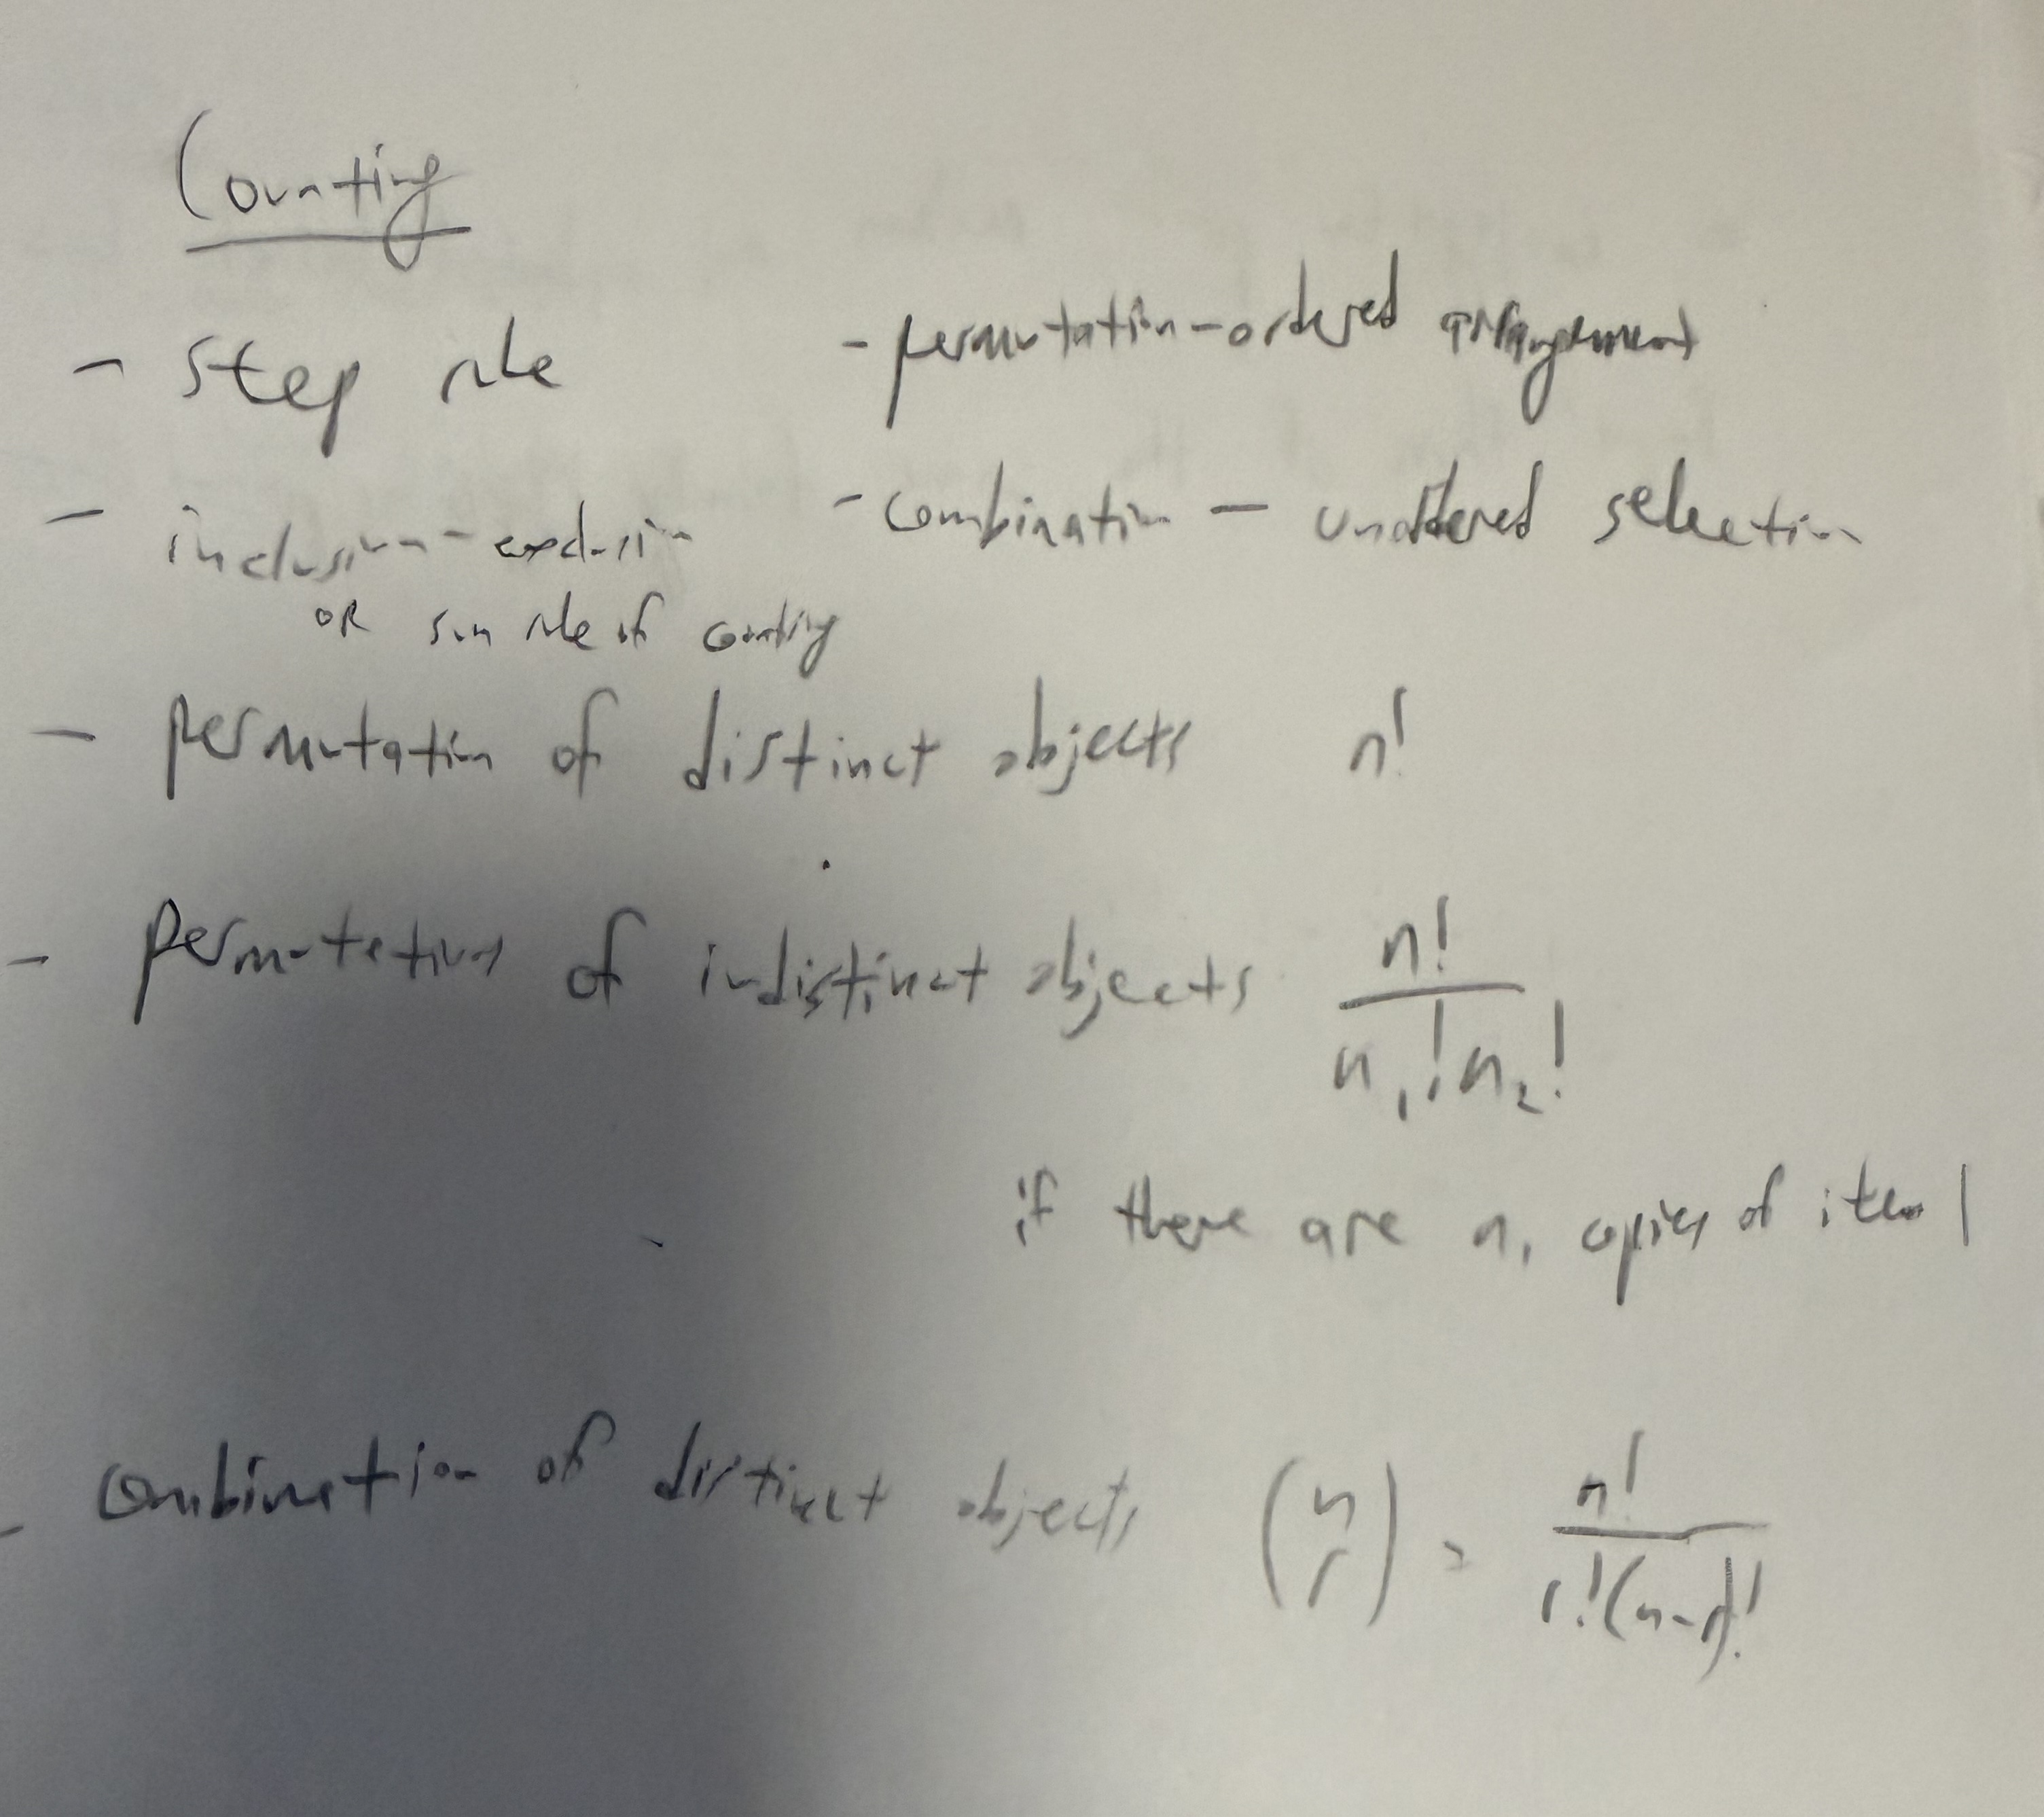 Counting
- step rule
- permutation - ordered arrangement
- inclusion - exclusion
OR sum rule of counting
- combination - unordered selection
- permutation of distinct objects n!
- permutations of indistinct objects n! / n₁! n₂!
if there are n₁ copies of item 1
- combination of distinct objects (n r) = n! / r!(n-r)!